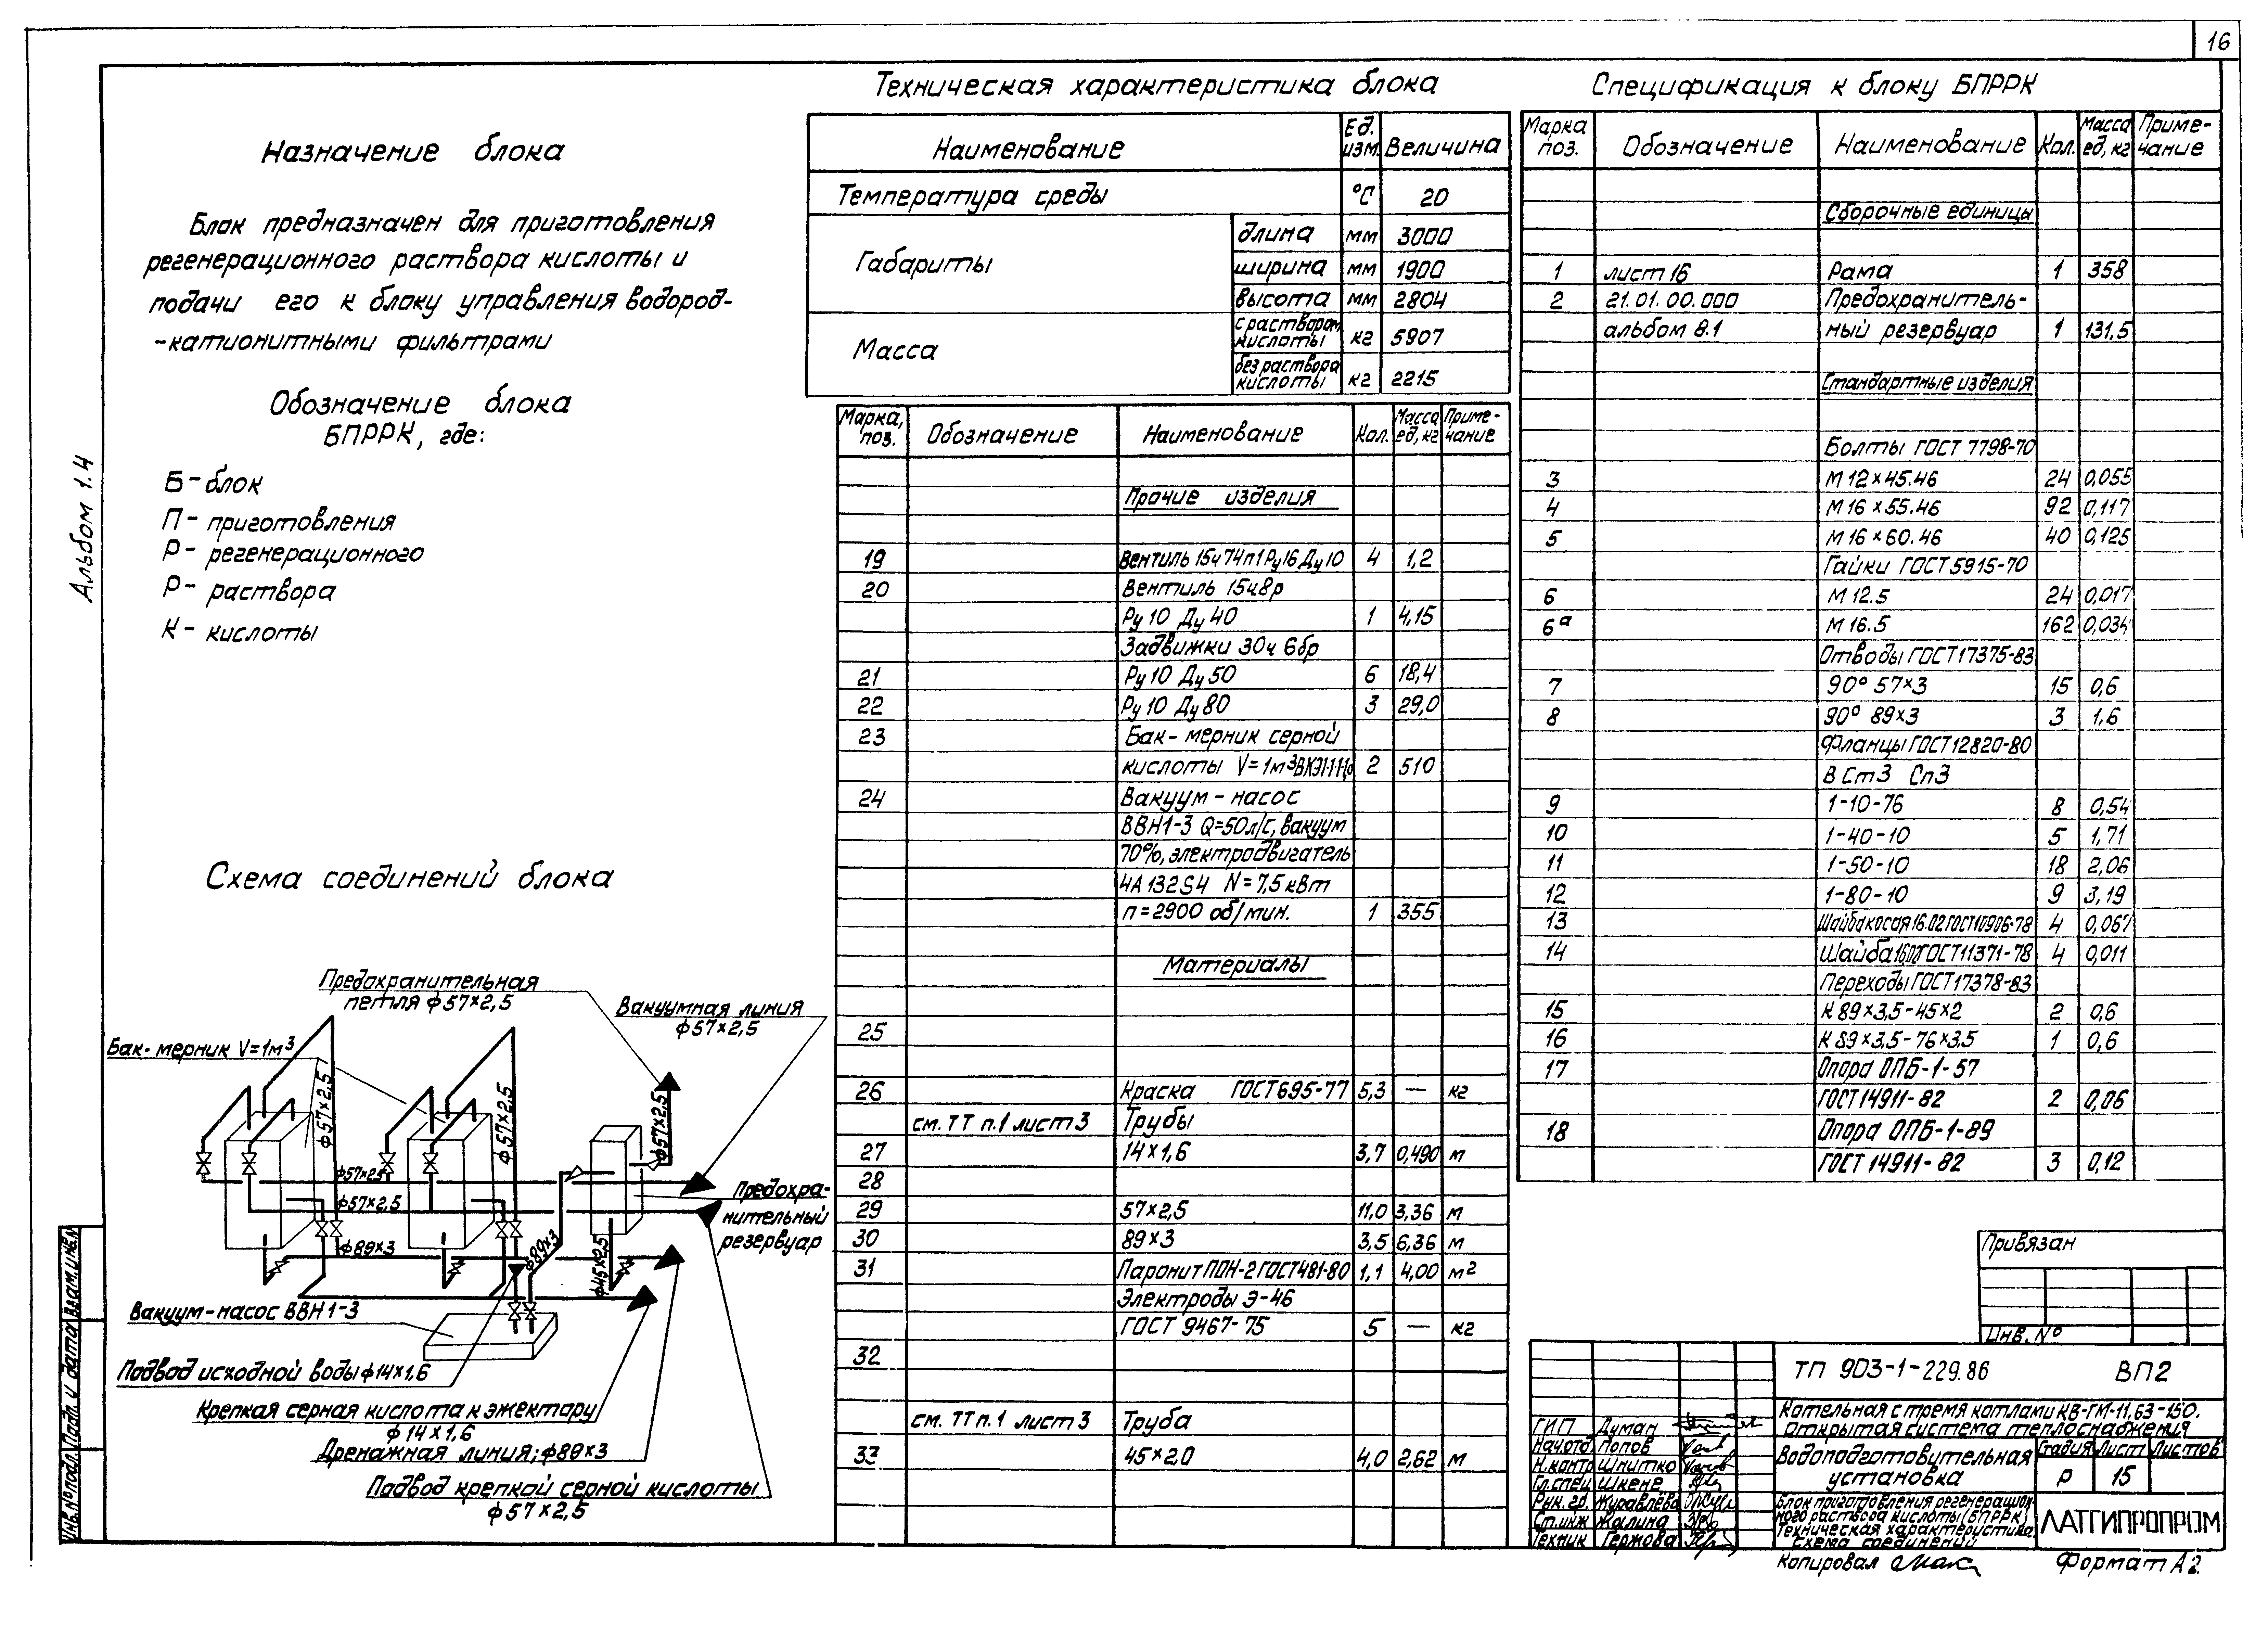 16
Альбом 1.4
Назначение блока
Блок предназначен для приготовления
регенерационного раствора кислоты и
подачи его к блоку управления водород-
-катионитными фильтрами
Обозначение блока
БПРРК, где:
Б - блок
П - приготовления
Р - регенерационного
Р - раствора
К - кислоты
Схема соединений блока
Предохранительная
петля ф57×2,5
Вакуумная линия
ф57×2,5
Бак-мерник V=1м³
ф57×2,5
ф57×2,5
ф57×2,5
ф57×2,5
ф57×2,5
Предохра-
нительный
резервуар
ф89×3
ф89×3
ф45×2,5
Вакуум-насос ВВН1-3
Подвод исходной воды ф14×1,6
Крепкая серная кислота к эжектару
ф14×1,6
Дренажная линия; ф89×3
Подвод крепкой серной кислоты
ф57×2,5
Техническая характеристика блока
Наименование Ед. изм. Величина
Температура среды °С 20
Габариты длина мм 3000
ширина мм 1900
высота мм 2804
Масса с раствором кислоты кг 5907
без раствора кислоты кг 2215
Марка, поз. Обозначение Наименование Кол. Масса ед, кг Приме-чание
Прочие изделия
19 Вентиль 15ч74п1 Ру16 Ду10 4 1,2
20 Вентиль 15ч8р
Ру10 Ду40 1 4,15
Задвижки 30ч 6бр
21 Ру10 Ду50 6 18,4
22 Ру10 Ду80 3 29,0
23 Бак-мерник серной
кислоты V=1м³ 2 510
24 Вакуум-насос
ВВН1-3 Q=50л/с, вакуум
70%, электродвигатель
4А132S4 N=7,5кВт
п=2900 об/мин. 1 355
Материалы
25
26 Краска ГОСТ695-77 5,3 — кг
см. ТТ п.1 лист 3 Трубы
27 14×1,6 3,7 0,490 м
28
29 57×2,5 11,0 3,36 м
30 89×3 3,5 6,36 м
31 Паронит ПОН-2 ГОСТ481-80 1,1 4,00 м²
Электроды Э-46
ГОСТ 9467-75 5 — кг
32
см. ТТ п.1 лист 3 Труба
33 45×2.0 4,0 2,62 м
Спецификация к блоку БПРРК
Марка поз. Обозначение Наименование Кол. Масса ед, кг Приме-чание
Сборочные единицы
1 лист 16 Рама 1 358
2 21.01.00.000 Предохранитель-
альбом 8.1 ный резервуар 1 131,5
Стандартные изделия
Болты ГОСТ 7798-70
3 М12×45.46 24 0,055
4 М16×55.46 92 0,117
5 М16×60.46 40 0,125
Гайки ГОСТ5915-70
6 М12.5 24 0,017
6а М16.5 162 0,034
Отводы ГОСТ17375-83
7 90° 57×3 15 0,6
8 90° 89×3 3 1,6
Фланцы ГОСТ12820-80
В Ст3 Сп3
9 1-10-76 8 0,54
10 1-40-10 5 1,71
11 1-50-10 18 2,06
12 1-80-10 9 3,19
13 Шайба косая 16.02 ГОСТ10906-78 4 0,067
14 Шайба ГОСТ11371-78 4 0,011
Переходы ГОСТ17378-83
15 К 89×3,5-45×2 2 0,6
16 К 89×3,5-76×3.5 1 0,6
17 Опора ОПБ-1-57
ГОСТ14911-82 2 0,06
18 Опора ОПБ-1-89
ГОСТ 14911-82 3 0,12
Привязан
Инв. №
ТП 903-1-229.86 ВП2
Котельная с тремя котлами КВ-ГМ-11,63-150.
Открытая система теплоснабжения
Водоподготовительная
установка
Стадия Лист Листов
Р 15
Блок приготовления регенерацион-
ного раствора кислоты (БПРРК)
Техническая характеристика.
Схема соединений
ЛАТГИПРОПРОМ
ГИП Думан
Нач.отд. Попов
Н.контр Шнитко
Гл.спец Шкене
Рук. гр. Журавлёва
Ст.инж Жолина
Техник Гержова
Копировал
Формат А2
Инв.№ подл. Подп. и дата Взам.инв.№